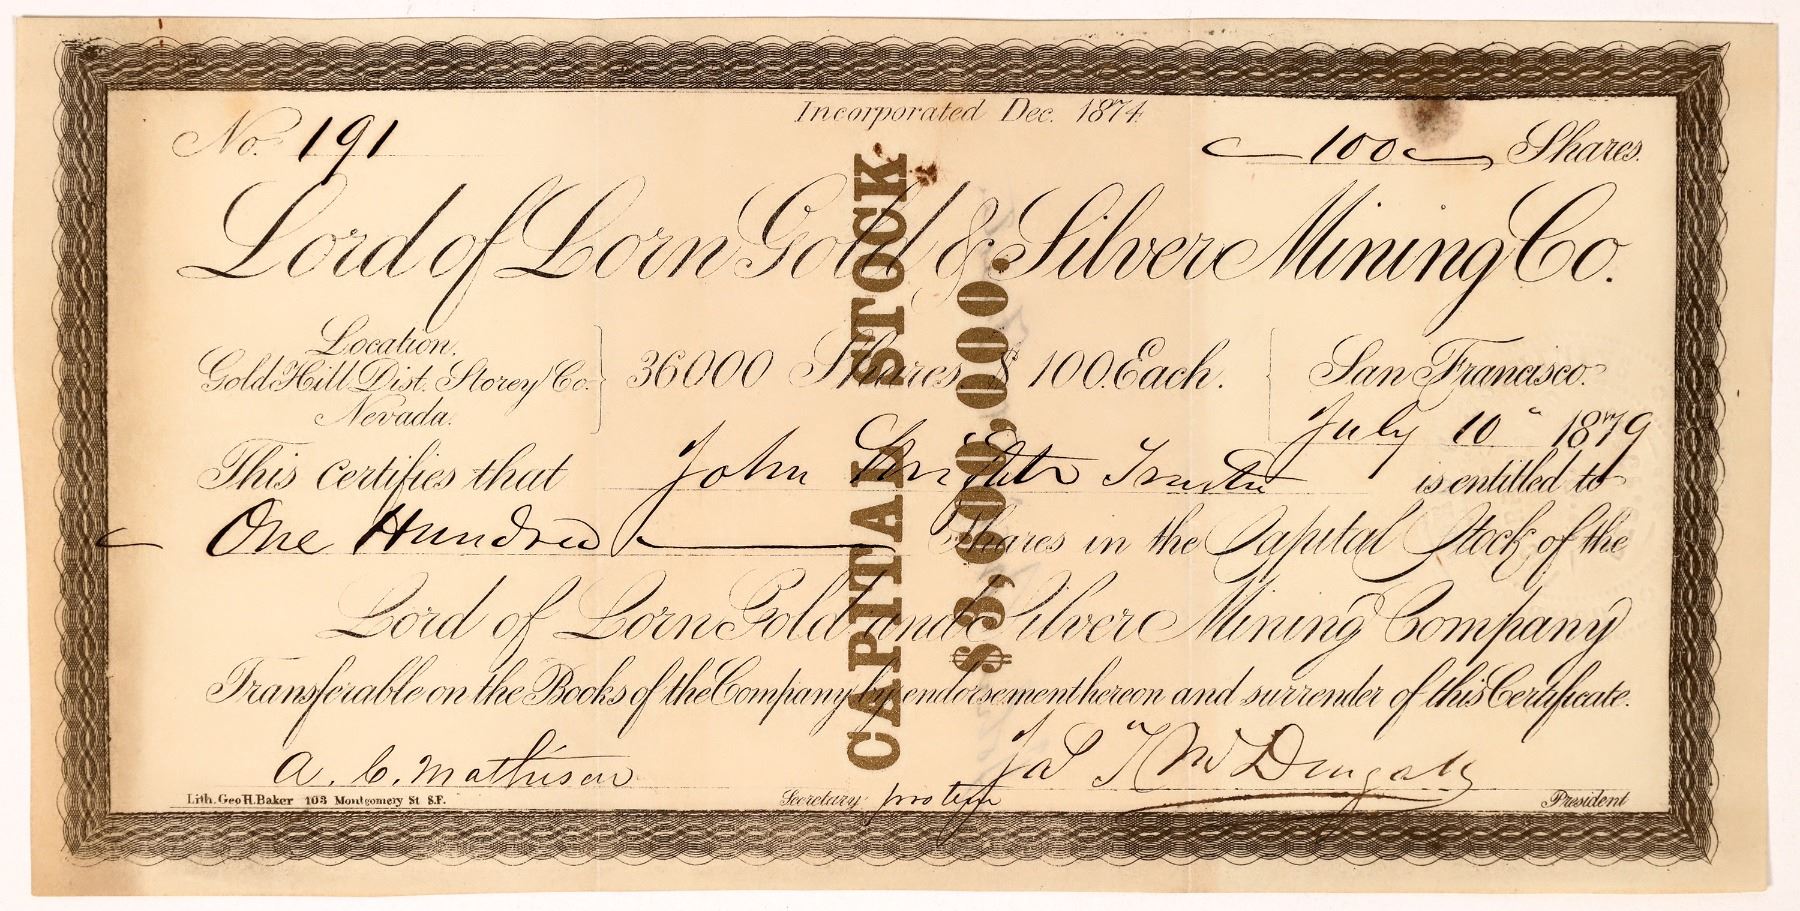 Incorporated Dec. 1874.
No. 191
100 Shares.
Lord of Lorn Gold & Silver Mining Co.
Location.
Gold Hill Dist. Storey Co.
Nevada.
36000 Shares $100. Each.
San Francisco.
July 10" 1879
This certifies that John Trustee is entitled to
One Hundred Shares in the Capital Stock of the
Lord of Lorn Gold and Silver Mining Company
Transferable on the Books of the Company by endorsement hereon and surrender of this Certificate.
A. C. Mathison
Lith. Geo H. Baker 103 Montgomery St S.F.
Secretary pro tem
President
CAPITAL STOCK
$3,600,000.